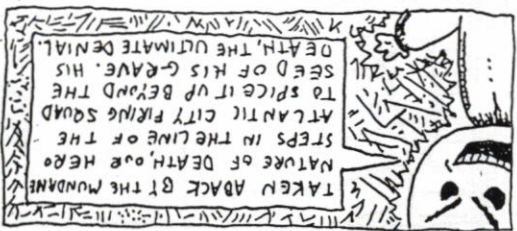 TAKEN ABACK BY THE MUNDANE
NATURE OF DEATH, OUR HERO
STEPS IN THE LINE OF THE
ATLANTIC CITY FIRING SQUAD
TO SPICE IT UP BEYOND THE
SEED OF HIS GRAVE. HIS
DEATH, THE ULTIMATE DENIAL.